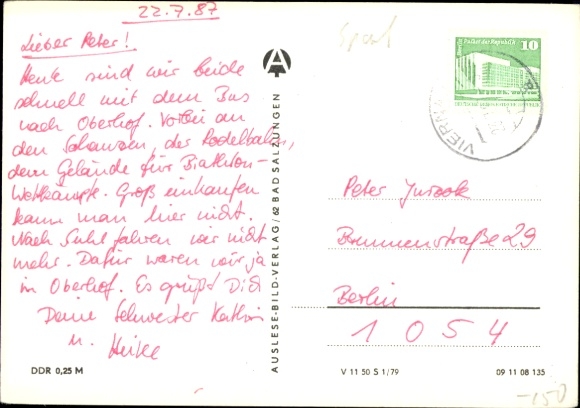 22.7.87
Lieber Peter!
Heute sind wir beide
schnell mit dem Bus
nach Oberhof. Vorbei an
den Schanzen, der Rodelbahn,
dem Gelände für Biathlon-
Wettkämpfe. Groß einkaufen
kann man hier nicht.
Nach Suhl fahren wir nicht
mehr. Dafür waren wir ja
in Oberhof. Es grüßt Dich
Deine Schwester Kathrin
u. Heike
DDR 0,25 M
AUSLESE-BILD-VERLAG / 62 BAD SALZUNGEN
Sport
Berlin, Palast der Republik
10
VIERNAU
Peter
Brunnenstraße 29
Berlin
1054
V 11 50 S 1/79
09 11 08 135
-150